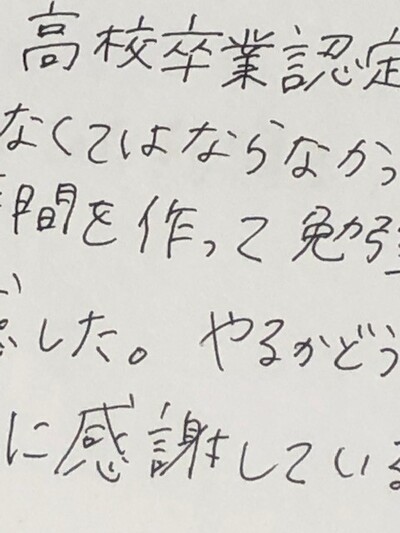 高校卒業認定
なくてはならなかっ
時間を作って勉強
した。やるかどう
に感謝している